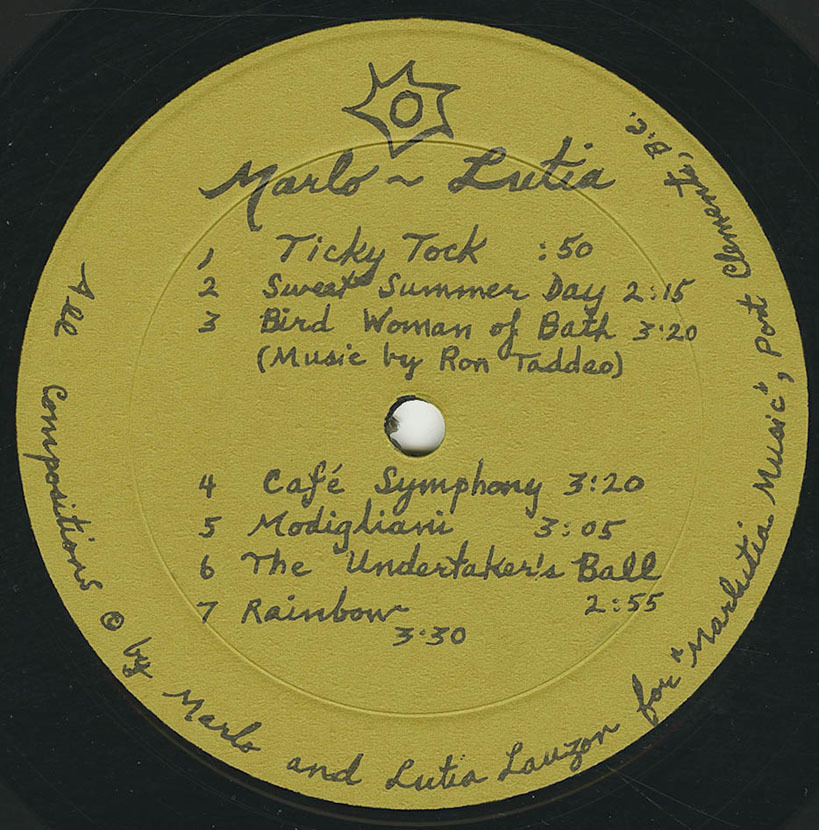 Marlo ~ Lutia
1 Ticky Tock :50
2 Sweet Summer Day 2:15
3 Bird Woman of Bath 3:20
(Music by Ron Taddeo)
4 Café Symphony 3:20
5 Modigliani 3:05
6 The Undertaker's Ball
2:55
7 Rainbow
3:30
All Compositions © by Marlo and Lutia Lauzon for "Marlutia Music", Port Clements, B.C.